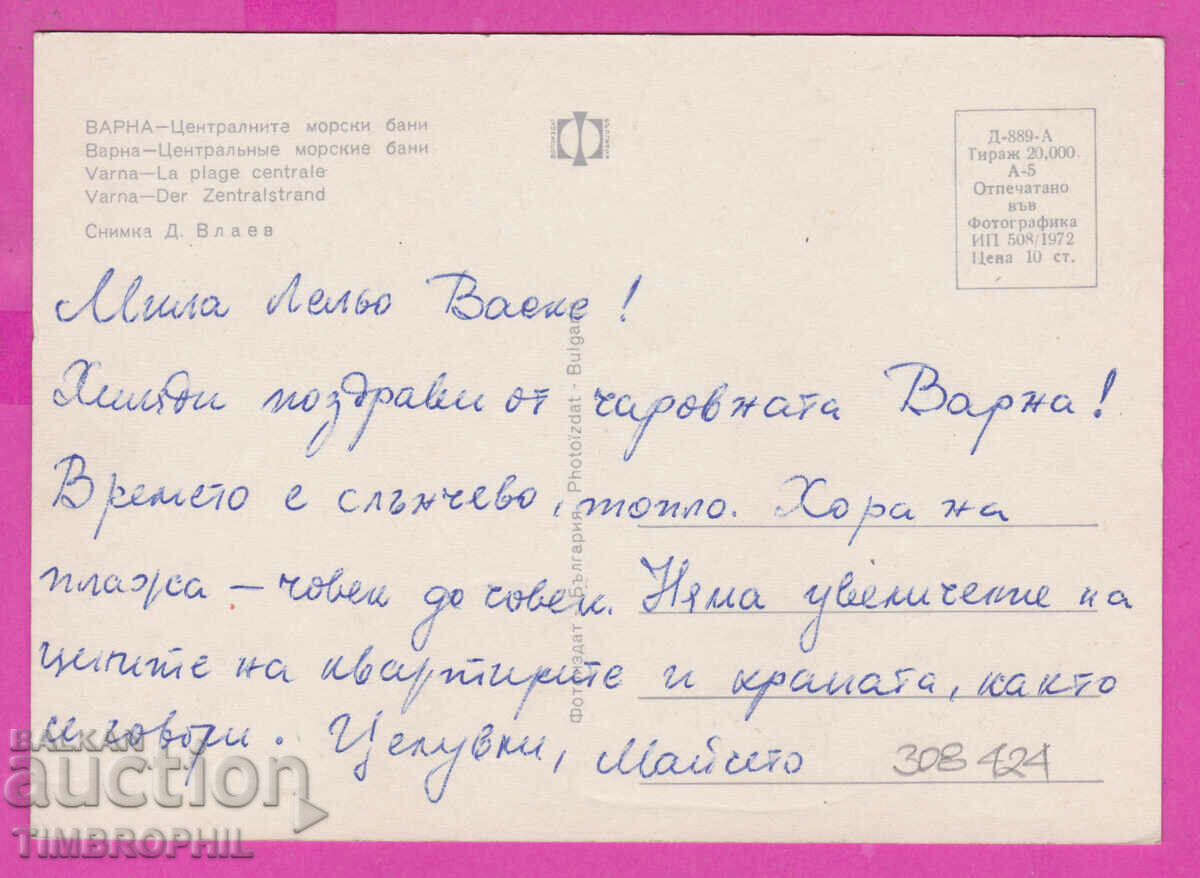 ВАРНА—Централните морски бани
Варна—Центральные морские бани
Varna—La plage centrale
Varna—Der Zentralstrand
Снимка Д. Влаев
Д-889-А
Тираж 20,000
А-5
Отпечатано
във
Фотографика
ИП 508/1972
Цена 10 ст.
Фотоиздат - България - Photoizdat - Bulgar
Мила ЛельоВаске!
Хиляди поздрави от чаровната Варна!
Времето е слънчево, топло. Хора на
плажа — човек до човек. Няма увеличение на
цените на квартирите и храната, както
се говори. Целувки,
308424
BALKAN
auction
TIMBROPHIL